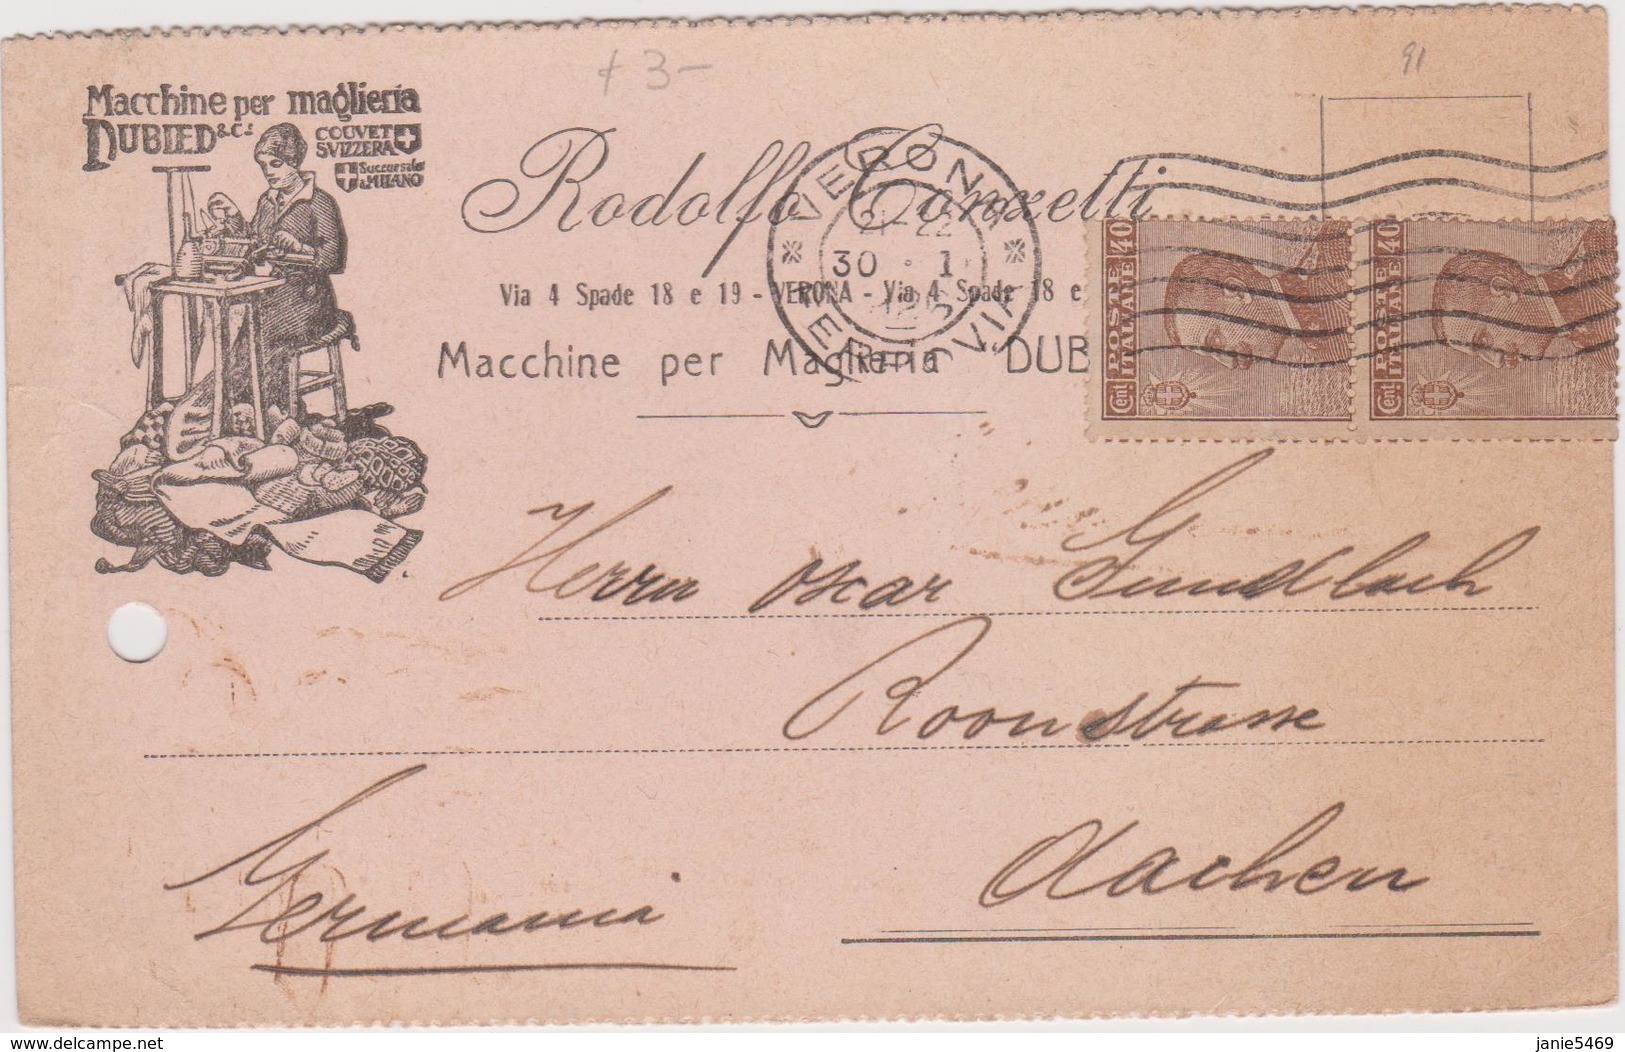 + 3 -
91
Macchine per maglieria
DUBIED & C.
COUVET
SVIZZERA
Succursale
a MILANO
Rodolfo Conzelli
VERONA
21-22
30 · 1
FERROVIA
Via 4 Spade 18 e 19 - VERONA - Via 4 Spade 18 e
Macchine per Maglieria "DUB
Cent 40
POSTE
ITALIANE
Cent 40
POSTE
ITALIANE
Herrn Oskar Gundlach
Roonstrasse
Aachen
Germania
delcampe.net
janie5469